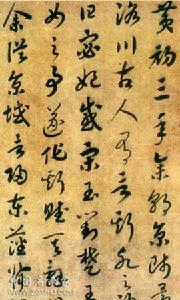 黃初三年余朝京師還
洛川古人有言斯水之
曰宓妃感宋玉對楚王
女之事遂作斯賦其辭
余從京域言歸東藩